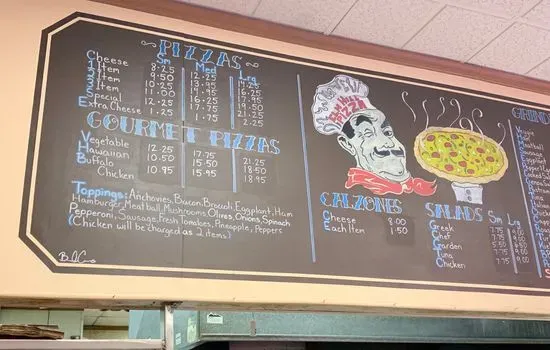 PIZZAS
Sm Med Lrg
Cheese 8.25 12.25 14.25
1 Item 9.50 13.95 16.25
2 Item 10.25 14.95 17.95
3 Item 11.00 16.25 19.50
Special 12.25 17.75 21.25
Extra Cheese 1.25 1.75 2.25
GOURMET PIZZAS
Vegetable 12.25 17.75 21.25
Hawaiian 10.50 15.50 18.50
Buffalo
Chicken 10.95 15.95 18.95
Toppings: Anchovies, Bacon, Broccoli, Eggplant, Ham
Hamburger, Meatball, Mushrooms, Olives, Onions, Spinach
Pepperoni, Sausage, Fresh Tomatoes, Pineapple, Peppers
(Chicken will be charged as 2 items)
PIZZA
CALZONES
Cheese 8.00
Each Item 1.50
SALADS Sm Lrg
Greek 7.75
Chef 7.75
Garden
Tuna 7.75
Chicken 7.75
GRIND
Veggie
Meatball
Sausage